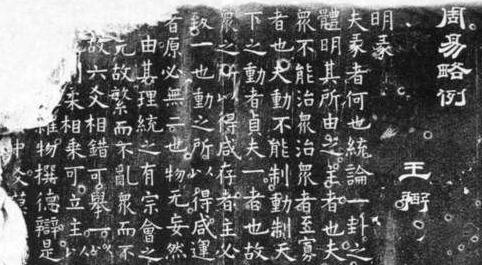 周易略例 王弼
明彖
夫彖者何也統論一卦之
體明其所由之主者也夫
眾不能治眾治眾者至寡
者也夫動不能制動制天
下之動者貞夫一者也故
眾之所以得咸存者主必
致一也動之所以得咸運
者原必無二也物无妄然
由其理統之有宗會之
元故繁而不亂眾而不
故六爻相錯可舉一以
柔相乘可立主以
雜物撰德辯是
中爻莫